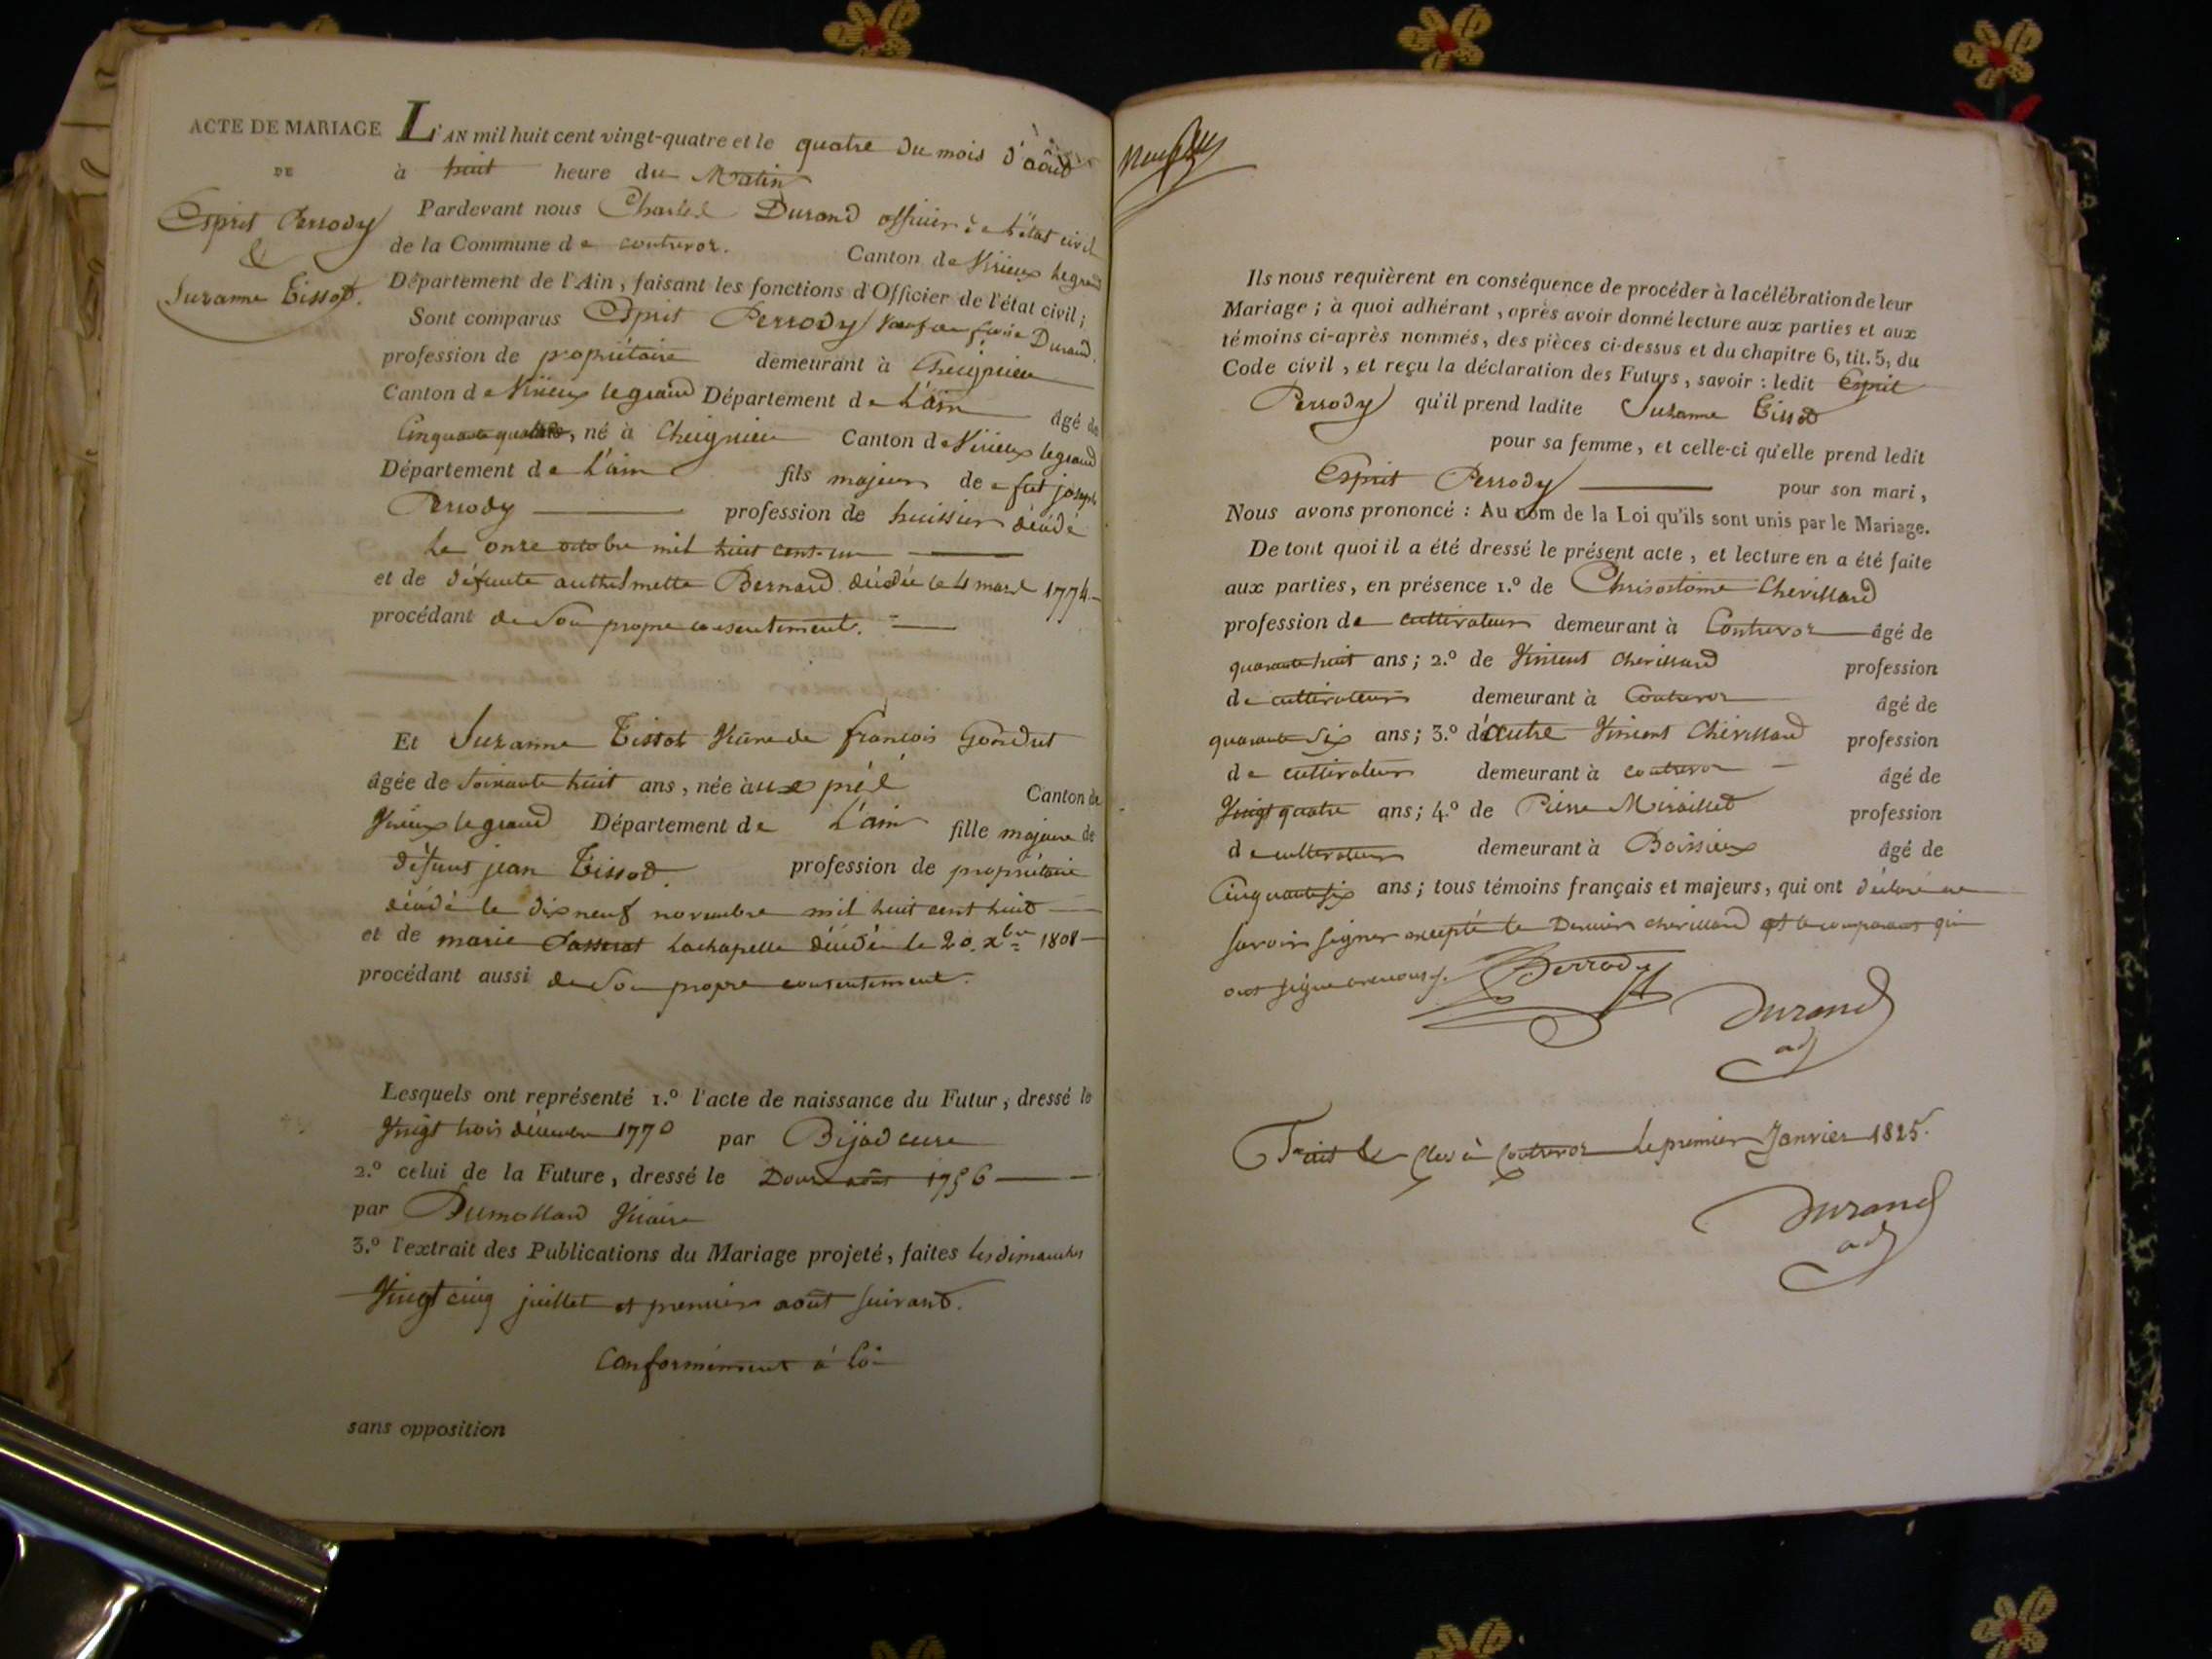 ACTE DE MARIAGE
DE
Esprit Perrody
&
Suzanne Tissot.
L'AN mil huit cent vingt-quatre et le quatre du mois d'août
à huit heure du Matin
Pardevant nous Charles Durand officier de l'état civil
de la Commune de contrevoz. Canton de Virieux legrand
Département de l'Ain, faisant les fonctions d'Officier de l'état civil;
Sont comparus Esprit Perrody veuf de Durand.
profession de propriétaire demeurant à Cheignieu
Canton de Virieux legrand Département de L'ain âgé de
Cinquante quatre, né à Cheignieu Canton de Virieux legrand
Département de L'ain fils majeur de fut joseph
Perrody profession de huissier décédé
le onze octobre mil huit cent un
et de défunte anthelmette Bernard décédée le 4 mars 1774
procédant de son propre consentement.
Et Suzanne Tissot Veuve de françois Gondut
âgée de soixante huit ans, née à Canton de
Virieux legrand Département de L'ain fille majeure de
défunt jean Tissot. profession de propriétaire
décédé le dix neuf novembre mil huit cent huit
et de marie Lachapelle décédée le 20. Xbre 1808
procédant aussi de son propre consentement.
Lesquels ont représenté 1.º l'acte de naissance du Futur, dressé le
Vingt trois décembre 1770 par Bijod curé
2.º celui de la Future, dressé le Douze août 1756
par Dumollard Vicaire
3.º l'extrait des Publications du Mariage projeté, faites les dimanches
Vingt cinq juillet et premier août suivant.
Conformément à loi
sans opposition
Ils nous requièrent en conséquence de procéder à la célébration de leur
Mariage; à quoi adhérant, après avoir donné lecture aux parties et aux
témoins ci-après nommés, des pièces ci-dessus et du chapitre 6, tit. 5, du
Code civil, et reçu la déclaration des Futurs, savoir: ledit Esprit
Perrody qu'il prend ladite Suzanne Tissot
pour sa femme, et celle-ci qu'elle prend ledit
Esprit Perrody pour son mari,
Nous avons prononcé: Au nom de la Loi qu'ils sont unis par le Mariage.
De tout quoi il a été dressé le présent acte, et lecture en a été faite
aux parties, en présence 1.º de Chrisostome Chevillard
profession de cultivateur demeurant à Contrevoz âgé de
quarante huit ans; 2.º de Vincent Chevillard profession
de cultivateur demeurant à Contrevoz âgé de
quarante six ans; 3.º d'autre Vincent Chevillard profession
de cultivateur demeurant à contrevoz âgé de
Vingt quatre ans; 4.º de Pierre Miraillet profession
de cultivateur demeurant à Boissieux âgé de
Cinquante six ans; tous témoins français et majeurs, qui ont déclaré ne
savoir signer excepté le Dernier chevillard et le comparant qui
ont signé avec nous.
Perrody
Durand
adj
Fait & clos à Contrevoz le premier Janvier 1825.
Durand
adj